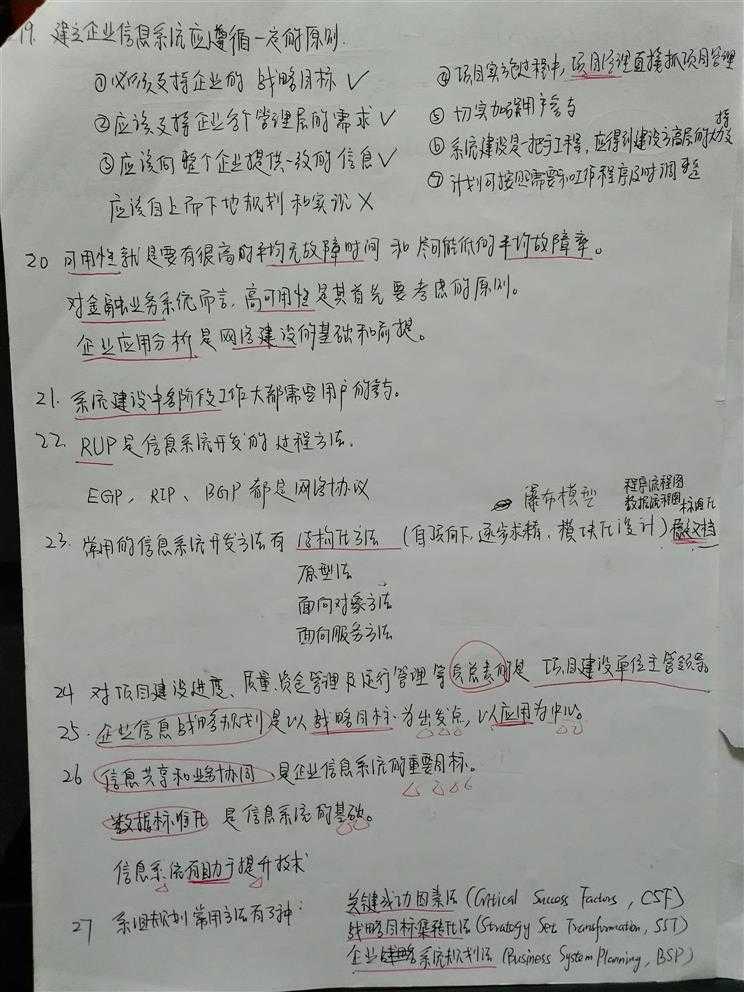 19. 建立企业信息系统应遵循一定的原则.
①必须支持企业的 战略目标 ✓
②应该支持企业各个管理层的需求 ✓
③应该向整个企业提供一致的信息 ✓
应该自上而下地规划和实现 ×
④项目实施过程中,项目经理直接抓项目管理
⑤ 切实加强用户参与
⑥ 系统建设是一把手工程,应得到建设方高层的大力支持
⑦ 计划可按照需要和工作程序及时调整
20 可用性就是要有很高的平均无故障时间 和 尽可能低的平均故障率。
对金融业务系统而言,高可用性是其首先要考虑的原则。
企业应用分析是网络建设的基础和前提。
21. 系统建设中各阶段工作大都需要用户的参与。
22. RUP是信息系统开发的过程方法.
EGP、RIP、BGP都是网络协议
瀑布模型
程序流程图
数据流程图 标准化
23. 常用的信息系统开发方法有 结构化方法 (自顶向下,逐步求精、模块化设计) 文档
原型法
面向对象方法
面向服务方法
24 对项目建设进度、质量、资金管理及运行管理等负总责的是 项目建设单位主管领导。
25. 企业信息战略规划是以战略目标为出发点,以应用为中心。
26 信息共享和业务协同是企业信息系统的重要目标。
数据标准化 是信息系统的基础。
信息系统有助于提升技术
27 系组规划常用方法有3种:
关键成功因素法 (Critical Success Factors, CSF)
战略目标集转化法 (Strategy Set Transformation, SST)
企业系统规划法 (Business System Planning, BSP)